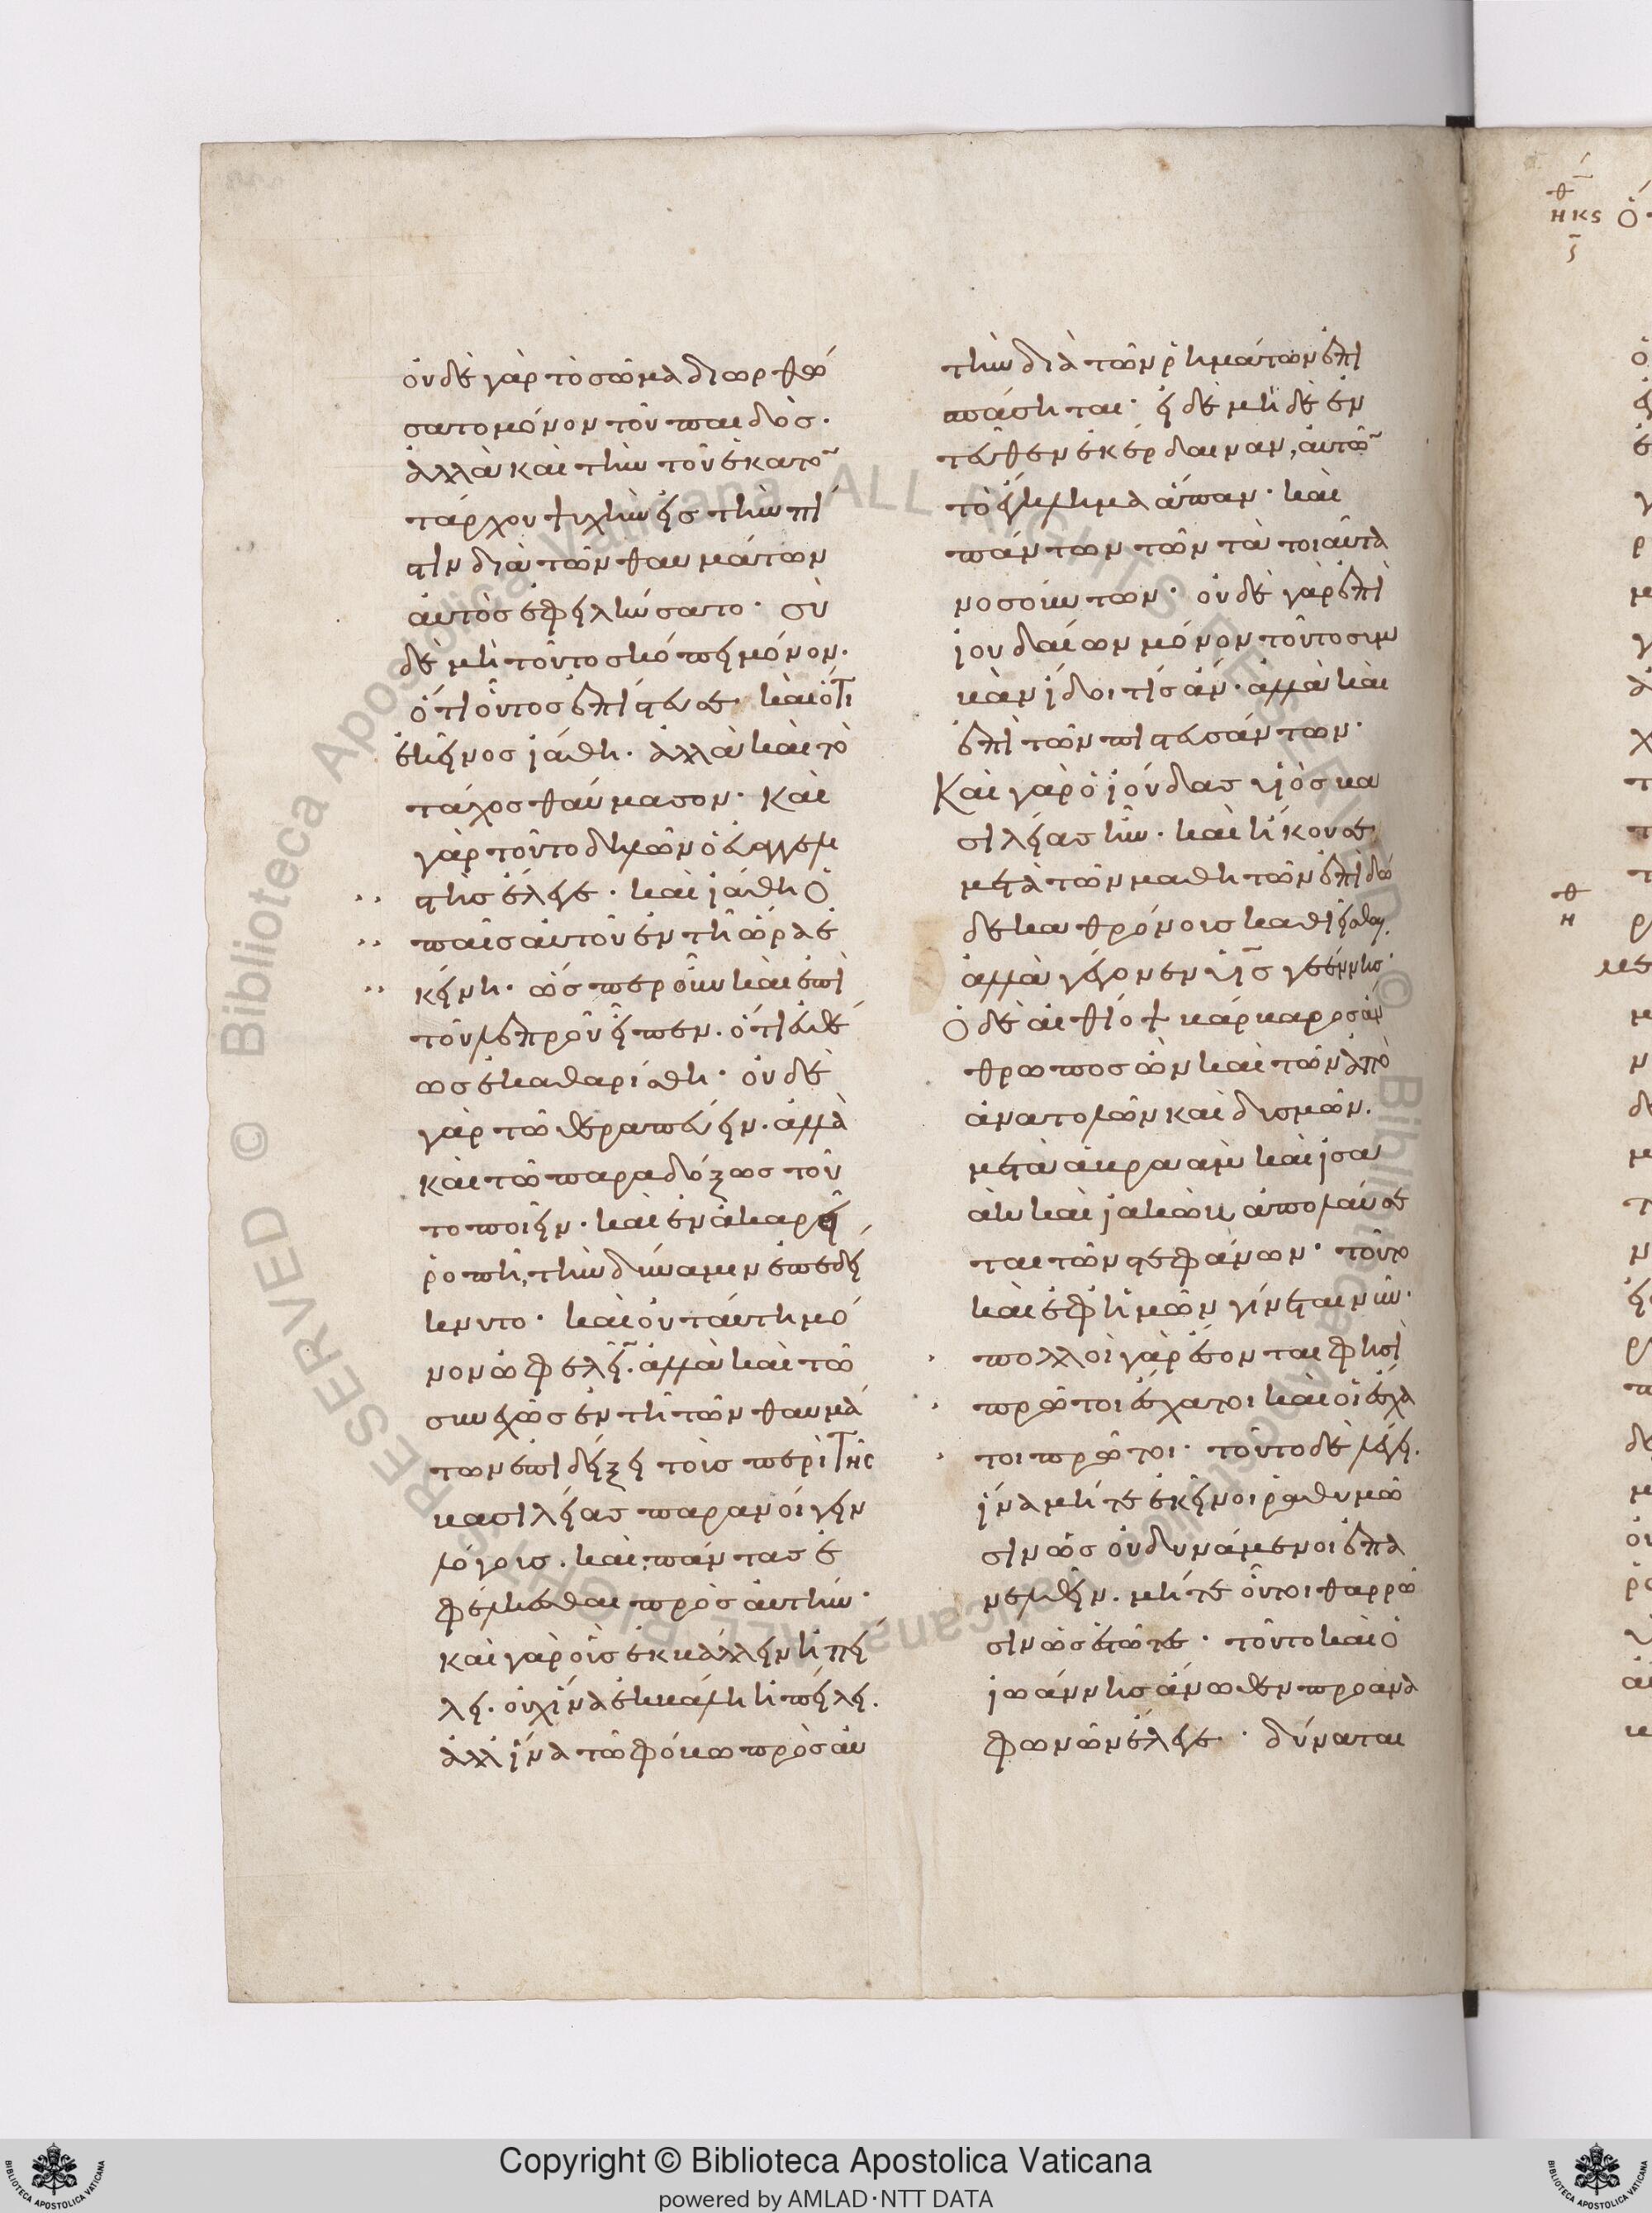 οὐδὲ γὰρ τὸ σῶμα διωρθώ
σατο μόνον τοῦ παιδός·
ἀλλὰ καὶ τὴν τοῦ ἑκατο
τάρχου ψυχὴν εἰς τὴν πί
στιν διὰ τῶν θαυμάτων
αὐτὸς ἐφειλκύσατο· σὺ
δὲ μὴ τοῦτο σκόπει μόνον·
ὅτι οὗτος ἐπίστευσε· καὶ ὅτι
ἐκεῖνος ἰάθη· ἀλλὰ καὶ τὸ
τάχος θαύμασον· Καὶ
γὰρ τοῦτο δηλῶν ὁ εὐαγγελι
στὴς ἔλεγε· καὶ ἰάθη ὁ
παῖς αὐτοῦ ἐν τῇ ὥρα ἐ
κείνη· ὥσπερ οὖν καὶ ἐπὶ
τοῦ λεπροῦ εἶπεν· ὅτι εὐθέ
ως ἐκαθαρίσθη· οὐδὲ
γὰρ τῶ θεραπεύειν· ἀλλὰ
καὶ τῶ παραδόξως τοῦ
το ποιεῖν· καὶ ἐν ἀκαρεῖ
ῥοπῆ, τὴν δύναμιν ἐπεδεί
κνυτο· καὶ οὐ ταύτη μό
νον ὠφελεῖ· ἀλλὰ καὶ τῶ
συνεχῶς ἐν τῇ τῶν θαυμά
των ἐπιδείξει τοὺς περὶ τῆς
βασιλείας παρανοίγειν
λόγους· καὶ πάντας ἐ
φέλκεσθαι πρὸς αὐτήν·
καὶ γὰρ οὓς ἐκβάλλειν ἠπεί
λει· οὐχ ἵνα ἐκβάλη ἠπείλει·
ἀλλ' ἵνα τῶ φόβω πρὸς αὐ
τὴν διὰ τῶν ῥημάτων ἐπι
σπάσηται· εἰ δὲ μηδὲ ἐν
τεῦθεν ἐκέρδαιναν, αὐτῶν
τὸ ἔγκλημα ἅπαν· καὶ
πάντων τῶν τὰ τοιαῦτα
νοσούντων· οὐδὲ γὰρ ἐπὶ
ἰουδαίων μόνον τοῦτο συμ
βὰν ἴδοι τίς ἄν· ἀλλὰ καὶ
ἐπὶ τῶν πιστευσάντων·
Καὶ γὰρ ὁ ἰούδας υἱὸς βα
σιλείας ἦν· καὶ ἤκουσε
μετὰ τῶν μαθητῶν ἐπὶ δώ
δεκα θρόνους καθιεῖσθαι·
ἀλλὰ γέγονεν υἱὸς γεέννης·
Ὁ δὲ αἰθίοψ βάρβαρος ἄν
θρωπος ὢν καὶ τῶν ἀπὸ
ἀνατολῶν καὶ δυσμῶν·
μετὰ ἀβραὰμ καὶ ἰσα
ὰκ καὶ ἰακὼβ ἀπολαύσε
ται τῶν στεφάνων· τοῦτο
καὶ ἐφ' ἡμῶν γίνεται νῦν·
πολλοὶ γὰρ ἔσονται φησὶ
πρῶτοι ἔσχατοι καὶ οἱ ἔσχα
τοι πρῶτοι· τοῦτο δὲ λέγει·
ἵνα μήτε ἐκεῖνοι ῥαθυμῶ
σιν ὡς οὐ δυνάμενοι ἐπα
νελθεῖν· μήτε οὗτοι θαρρῶ
σιν ὡς ἑστῶτες· τοῦτο καὶ ὁ
ἰωάννης ἄνωθεν προανα
φωνῶν ἔλεγε· δύναται